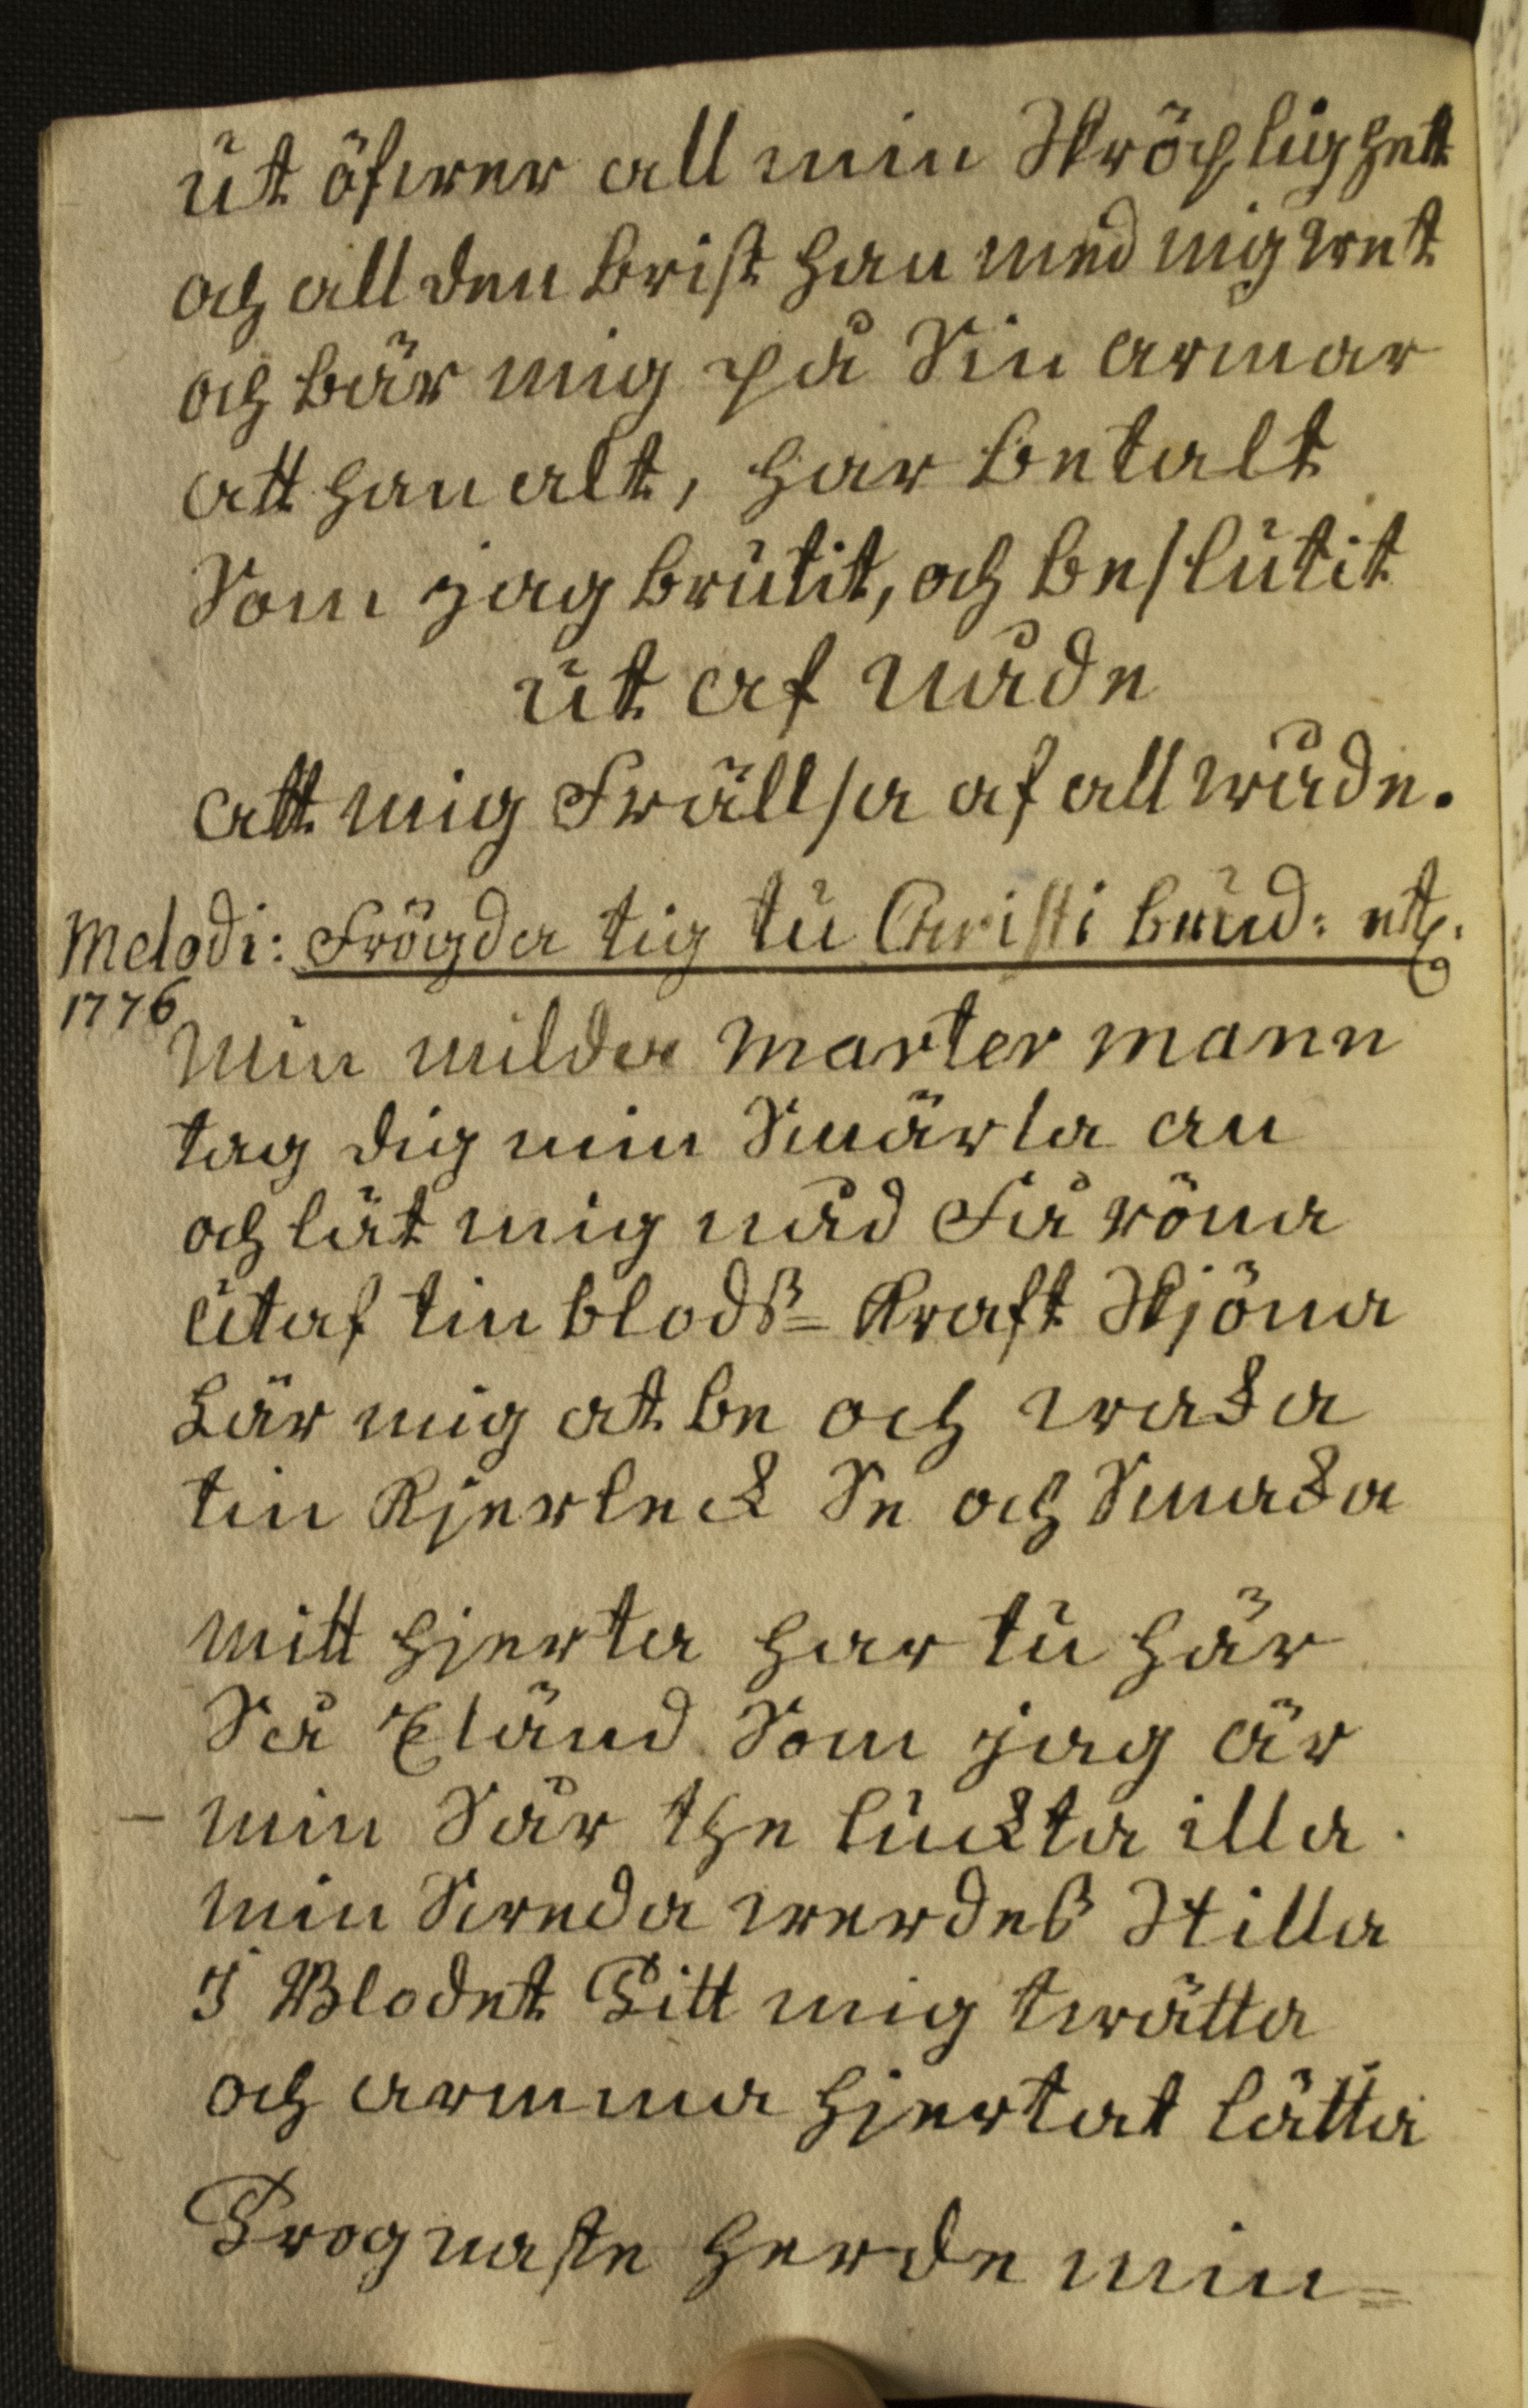 ut öfwer all min Skröpligheet
och all den brist han med mig wet
och bär mig på Sin armar
att han alt, har betalt
Som jag brutit, och beslutit
ut af nåde
att mig Frällsa af all wåde.
Melodi: Frögda tig tu Christi brud: etc.
1776
Min milda Marter Mann
tag dig min Smärta an
och låt mig nåd Få röna
utaf tin blodß= Kraft Skjöna
Lär mig at be och waka
tin Kjerleck Se och Smaka
mitt hjerta har tu här
Så Eländ Som jag är
– min Sår the luckta illa
min Sweda werdeß Stilla
I Blodet Titt mig twätta
och armma hjertat lätta
Trognaste herde min=